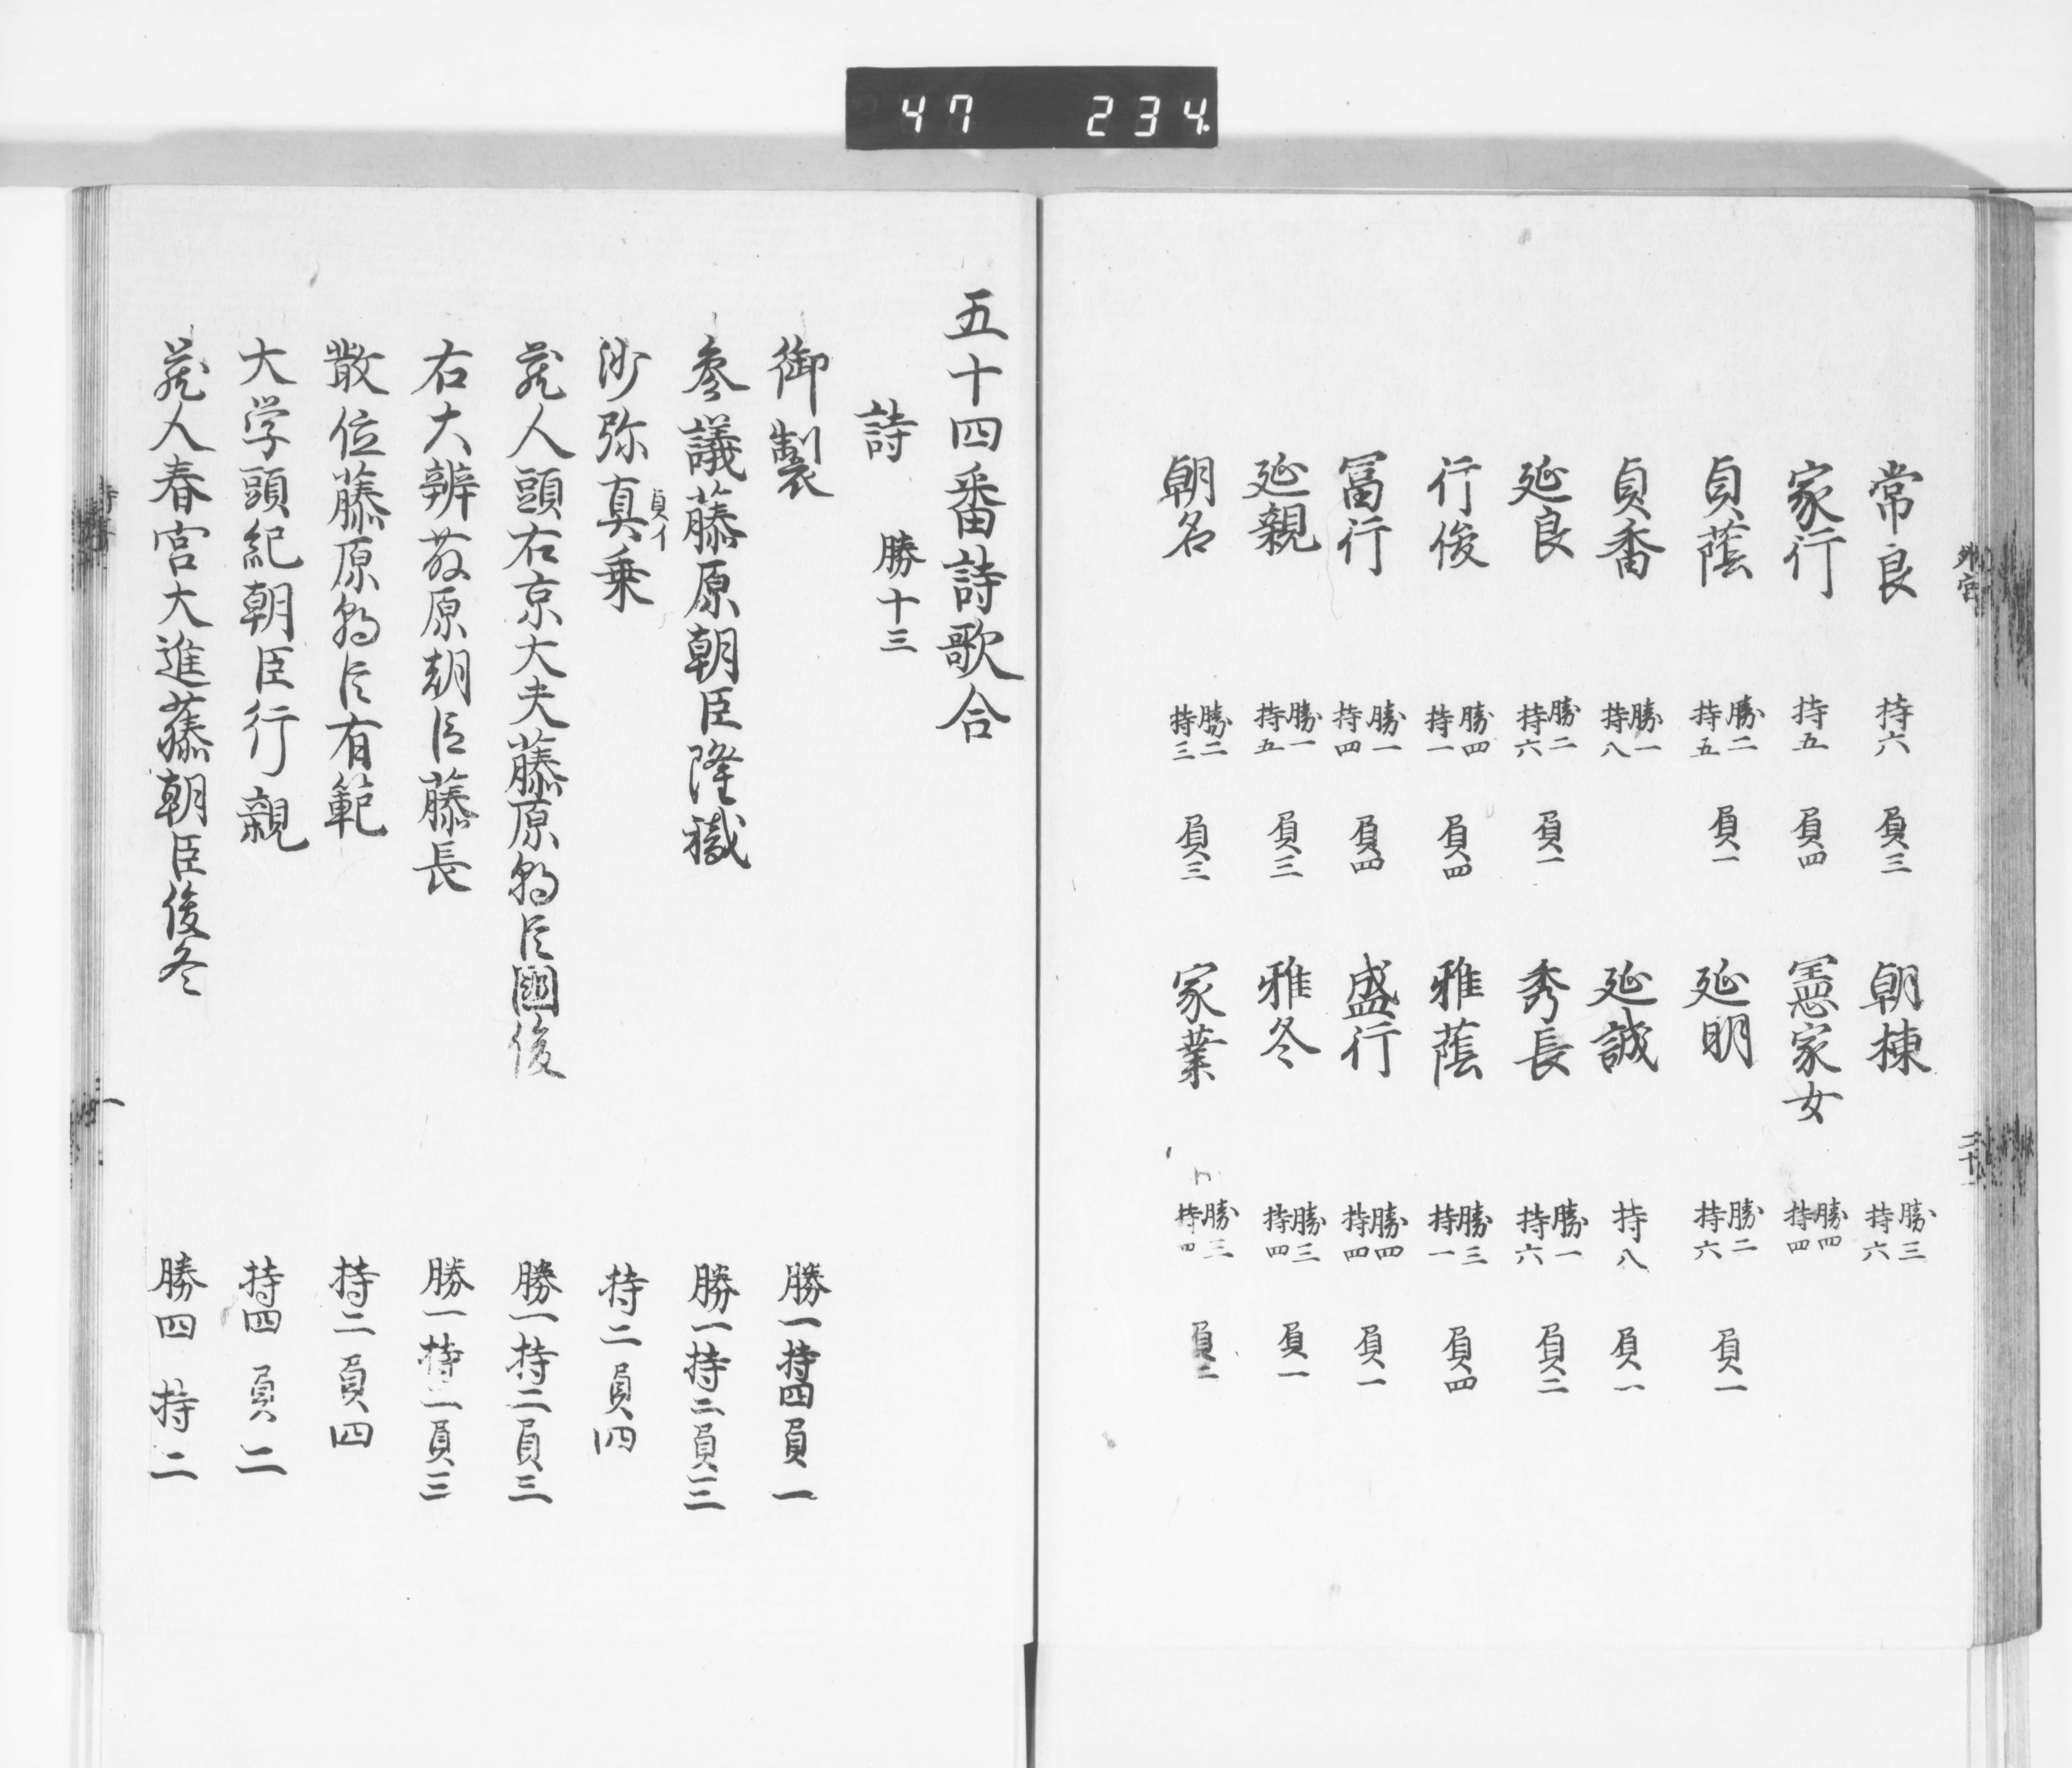 47 234
外宮
常良 持六 負三 朝棟 勝三 持六
家行 持五 負四 憲家女 勝四 持四
貞蔭 勝二 持五 負一 延明 勝二 持六 負一
貞香 勝一 持八 延誠 持八 負一
延良 勝二 持六 負一 秀長 勝一 持六 負二
行俊 勝四 持一 負四 雅蔭 勝三 持一 負四
冨行 勝一 持四 負四 盛行 勝四 持四 負一
延親 勝一 持五 負三 雅冬 勝三 持四 負一
朝名 勝二 持三 負三 家業 勝三 持四 負二
五十四番詩歌合
詩 勝十三
御製 勝一持四負一
参議藤原朝臣隆職 勝一持二負三
沙弥真乗 貞イ 持二負四
蔵人頭右京大夫藤原朝臣國俊 勝一持二負三
右大辨藤原朝臣藤長 勝一持二負三
散位藤原朝臣有範 持二負四
大学頭紀朝臣行親 持四負二
蔵人春宮大進藤朝臣俊冬 勝四持二